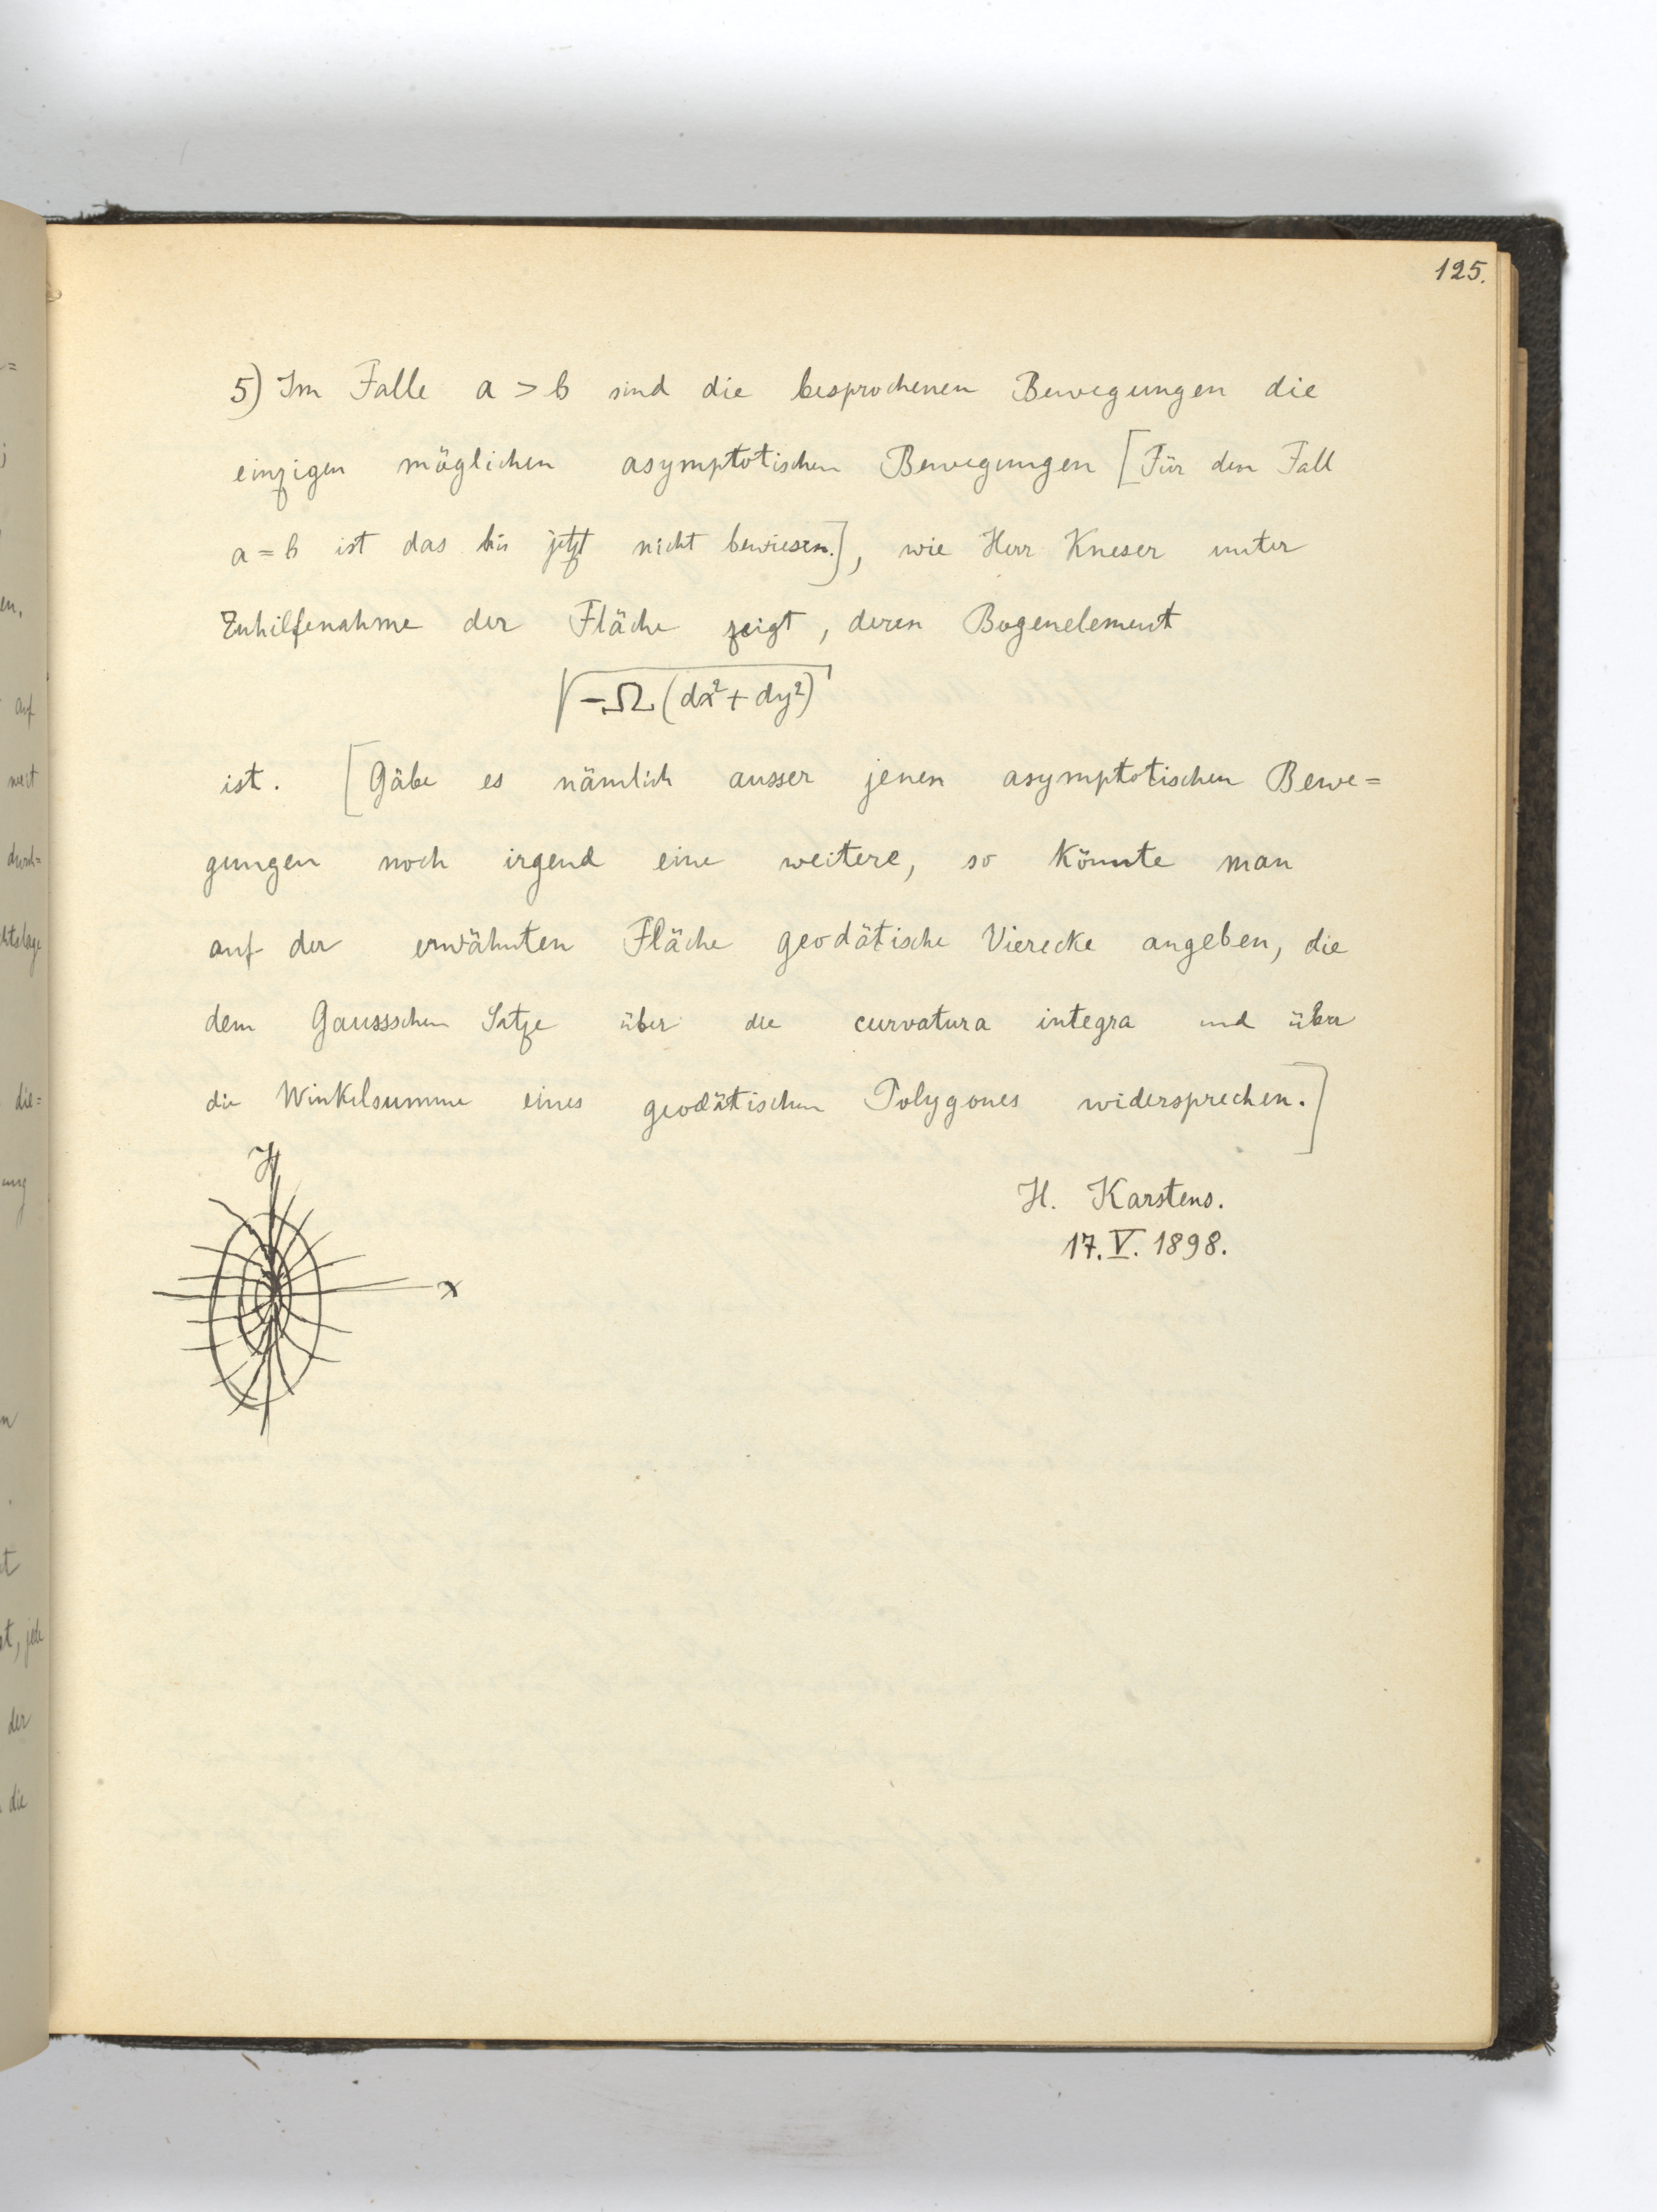 125.
5) Im Falle a > b sind die besprochenen Bewegungen die
einzigen möglichen asymptotischen Bewegungen [Für den Fall
a = b ist das bis jetzt nicht bewiesen.], wie Herr Kneser unter
Zuhilfenahme der Fläche zeigt, deren Bogenelement
√-Ω(dx²+dy²)
ist. [Gäbe es nämlich ausser jenen asymptotischen Bewe=
gungen noch irgend eine weitere, so könnte man
auf der erwähnten Fläche geodätische Vierecke angeben, die
dem Gaussschen Satze über die curvatura integra und über
die Winkelsumme eines geodätischen Polygones widersprechen.]
H. Karstens.
17. V. 1898.
y
x
auf
der
die